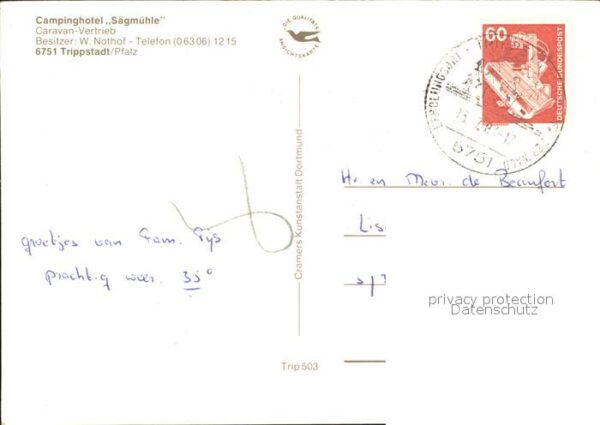 Campinghotel „Sägmühle"
Caravan-Vertrieb
Besitzer: W. Nothof - Telefon (06306) 1215
6751 Trippstadt/Pfalz
DIE QUALITÄTS
ANSICHTSKARTE
60
DEUTSCHE BUNDESPOST
ERHOLUNGSORT
6751
Cramers Kunstanstalt Dortmund
Hr en Mevr. de Beaufort
Lis
groetjes van Fam. Pys
prachtig weer. 35°
privacy protection
Datenschutz
Trip 503